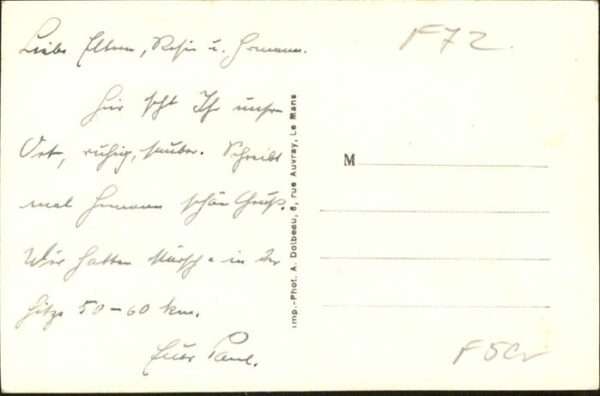 Liebe Eltern, Resi u. Hermann.
Hier seht Ihr unsren
Ort, ruhig, sauber. Schreibt
mal Hermann schön Gruß.
Wir hatten Märsche in der
Hitze 50-60 km.
Euer Paul.
F72
M
Imp.-Phot. A. Dolbeau, 8, rue Auvray, Le Mans